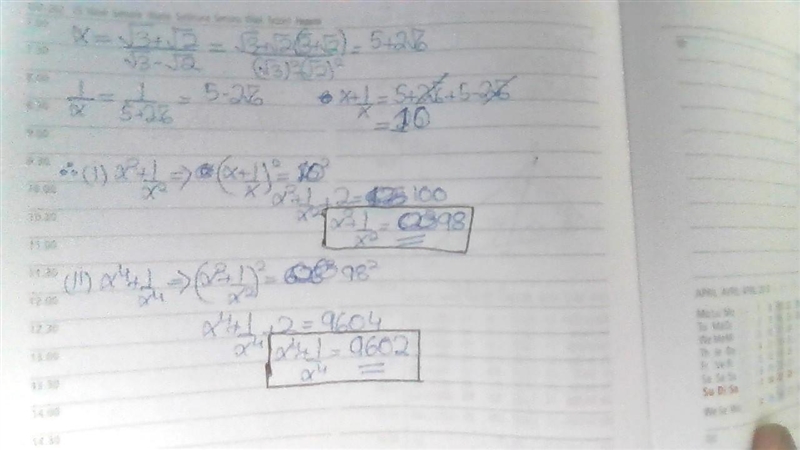 x = √3+√2 / √3-√2 = √3+√2(√3+√2) / (√3)²-(√2)² = 5+2√6
1/x = 1/5+2√6 = 5-2√6 x+1/x = 5+2√6+5-2√6
= 10
∴ (I) x²+1/x² ⇒ (x+1/x)² = 10²
x²+1/x²+2 = 100
x²+1/x² = 98
(II) x⁴+1/x⁴ ⇒ (x²+1/x²)² = 98²
x⁴+1/x⁴+2 = 9604
x⁴+1/x⁴ = 9602
7.30
8.00
8.30
9.00
9.30
10.00
10.30
11.00
11.30
12.00
12.30
13.00
13.30
14.00
14.30
Su Di So